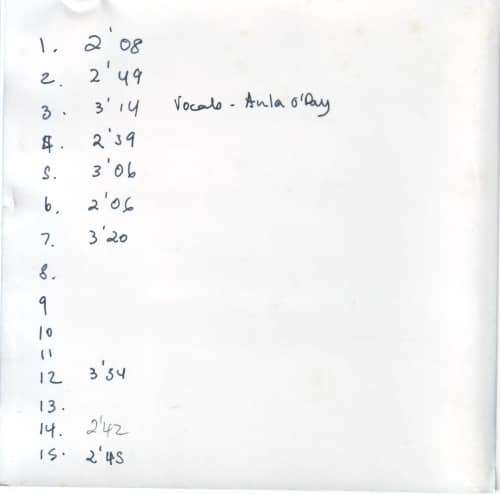 1. 2'08
2. 2'49
3. 3'14 Vocals - Anla O'Day
4. 2'39
5. 3'06
6. 2'06
7. 3'20
8.
9
10
11
12 3'54
13.
14. 2'42
15. 2'45